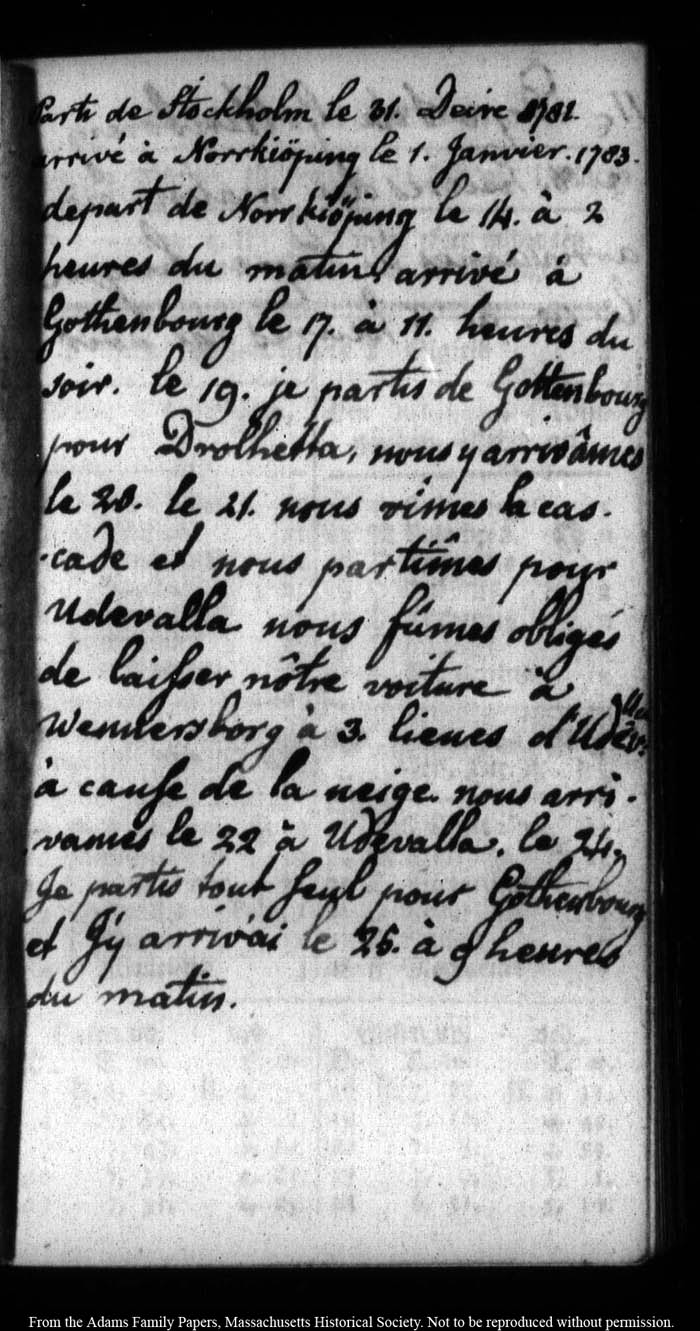 Parti de Stockholm le 31. Decre 1782.
arrivé à Norrkiöping le 1. Janvier. 1783.
depart de Norrkiöping le 14. à 2
heures du matin, arrivé à
Gothenbourg le 17. à 11. heures du
soir. le 19. je partis de Gottenbourg
pour Drolhetta, nous y arrivâmes
le 20. le 21. nous vîmes la cas-
cade et nous partîmes pour
Udevalla nous fûmes obligés
de laisser nôtre voiture à
Wennersborg à 3. lieues d'Udevalla
à cause de la neige. nous arri-
vames le 22 à Udevalla. le 24.
Je partis tout seul pour Gothenbourg
et J'y arrivai le 25. à 9 heures
du matin.
From the Adams Family Papers, Massachusetts Historical Society. Not to be reproduced without permission.